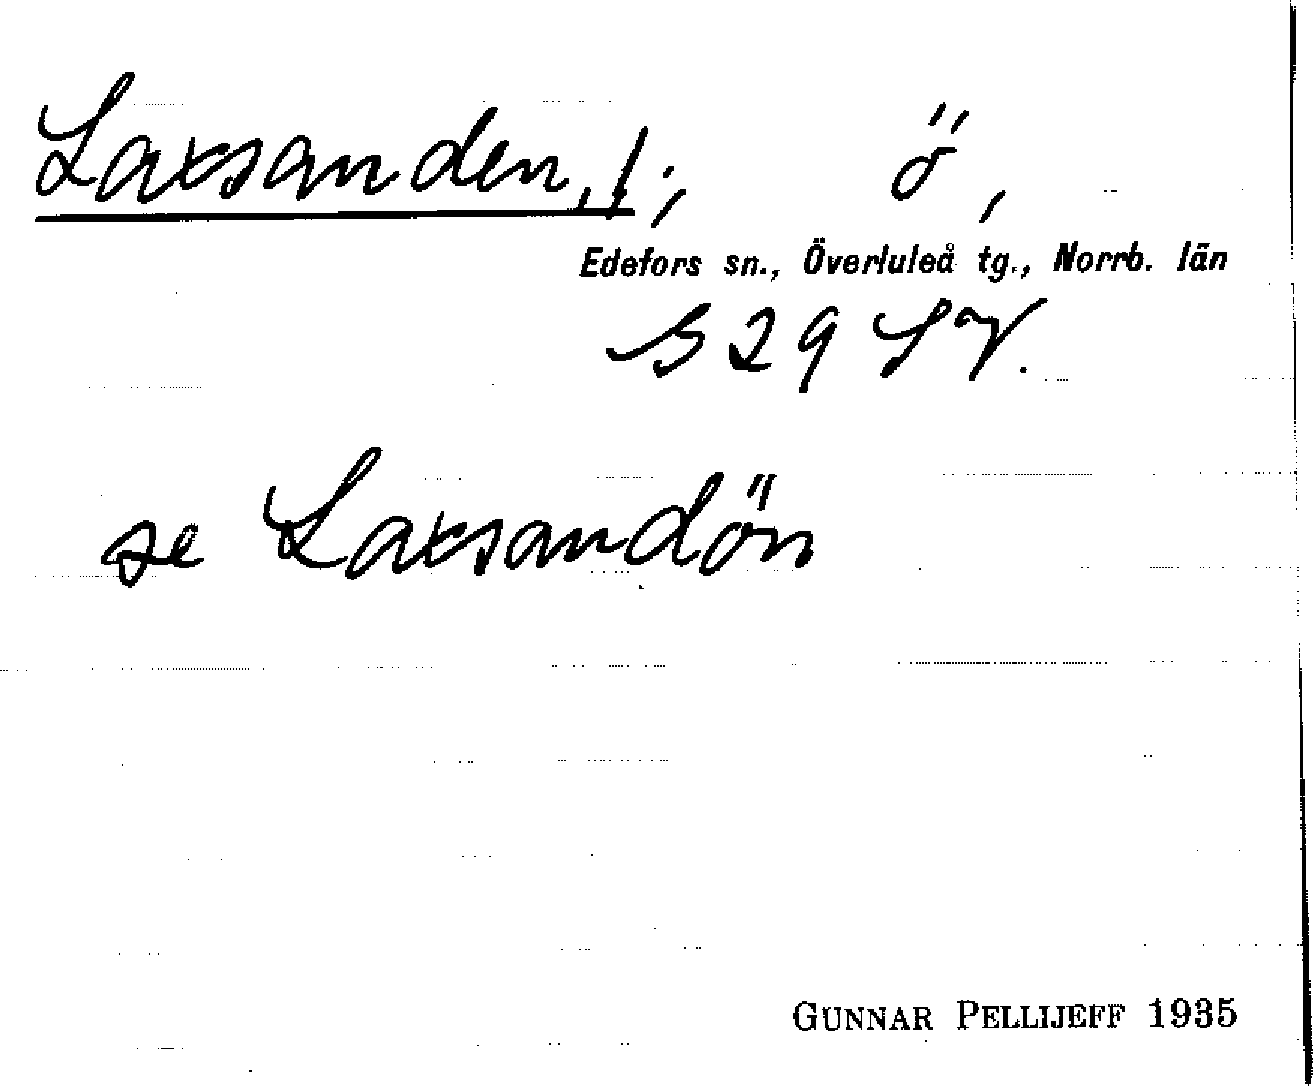 Laxsanden, 1; ö,
Edefors sn., Överluleå tg., Norrb. län
S 29 SV.
se Laxsandön
GUNNAR PELLIJEFF 1935